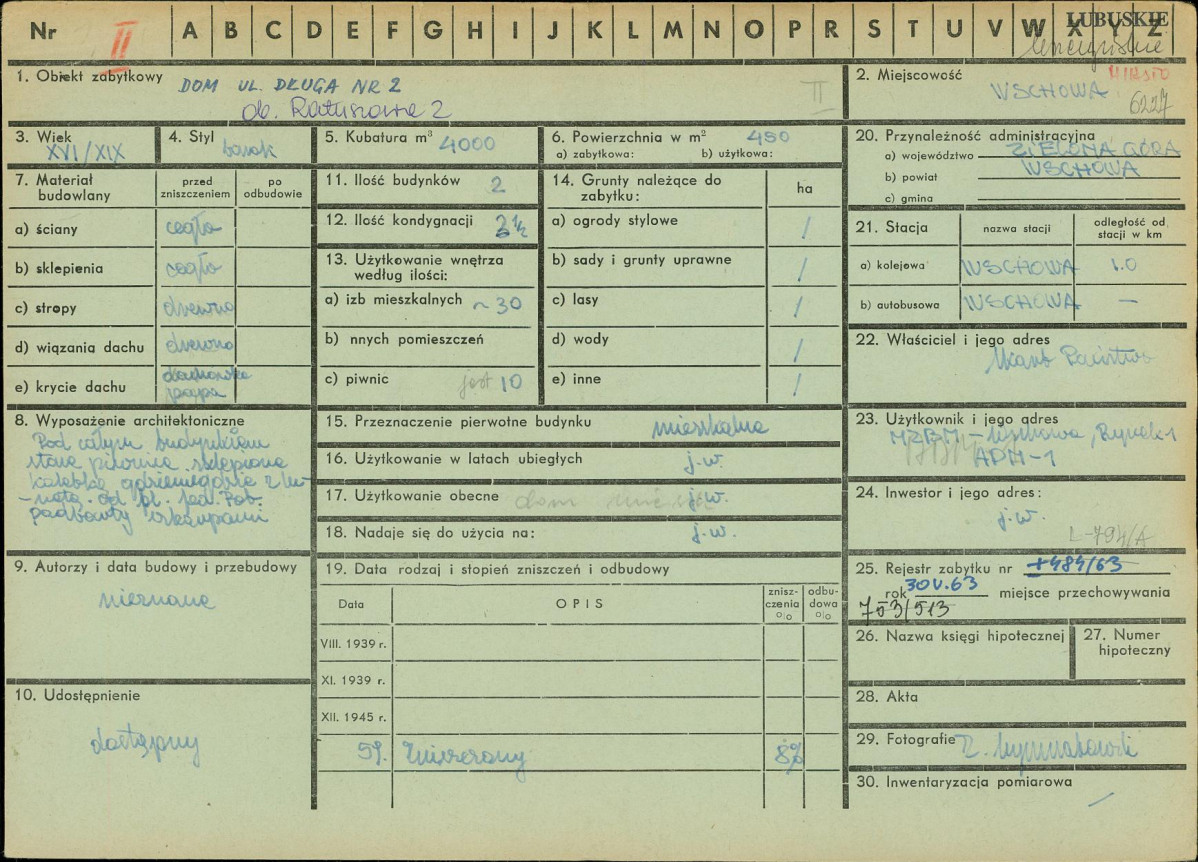 Nr II A B C D E F G H I J K L M N O P R S T U V W X Y Z
LUBUSKIE
1. Obiekt zabytkowy DOM UL. DŁUGA NR 2
ob. Ratuszowa 2
II
2. Miejscowość
MIASTO
WSCHOWA
6227
3. Wiek
XVI/XIX
4. Styl
barok
5. Kubatura m³ 4000
6. Powierzchnia w m² 480
a) zabytkowa: b) użytkowa:
20. Przynależność administracyjna
a) województwo ZIELONA GÓRA
b) powiat WSCHOWA
c) gmina
7. Materiał budowlany
przed zniszczeniem
po odbudowie
a) ściany cegła
b) sklepienia cegła
c) stropy drewno
d) wiązania dachu drewno
e) krycie dachu dachówka
papa
11. Ilość budynków 2
12. Ilość kondygnacji 2½
13. Użytkowanie wnętrza
według ilości:
a) izb mieszkalnych ~30
b) nnych pomieszczeń
c) piwnic jest 10
14. Grunty należące do
zabytku:
ha
a) ogrody stylowe /
b) sady i grunty uprawne /
c) lasy /
d) wody /
e) inne /
21. Stacja
nazwa stacji
odległość od
stacji w km
a) kolejowa WSCHOWA 1.0
b) autobusowa WSCHOWA —
22. Właściciel i jego adres
Skarb Państwa
8. Wyposażenie architektoniczne
Pod całym budynkiem
stare piwnice sklepione
kolebką
podparty skarpami
15. Przeznaczenie pierwotne budynku mieszkalne
16. Użytkowanie w latach ubiegłych j.w.
17. Użytkowanie obecne dom j.w.
18. Nadaje się do użycia na: j.w.
23. Użytkownik i jego adres
MZBM – Wschowa, Rynek 1
ADM-1
24. Inwestor i jego adres:
j.w.
L-794/A
9. Autorzy i data budowy i przebudowy
nieznane
19. Data rodzaj i stopień zniszczeń i odbudowy
Data
OPIS
znisz-
czenia
%
odbu-
dowa
%
VIII. 1939 r.
XI. 1939 r.
XII. 1945 r.
59. 8%
25. Rejestr zabytku nr 484/63
rok 30 V. 63 miejsce przechowywania
753/513
26. Nazwa księgi hipotecznej
27. Numer
hipoteczny
10. Udostępnienie
dostępny
28. Akta
29. Fotografie
30. Inwentaryzacja pomiarowa
—